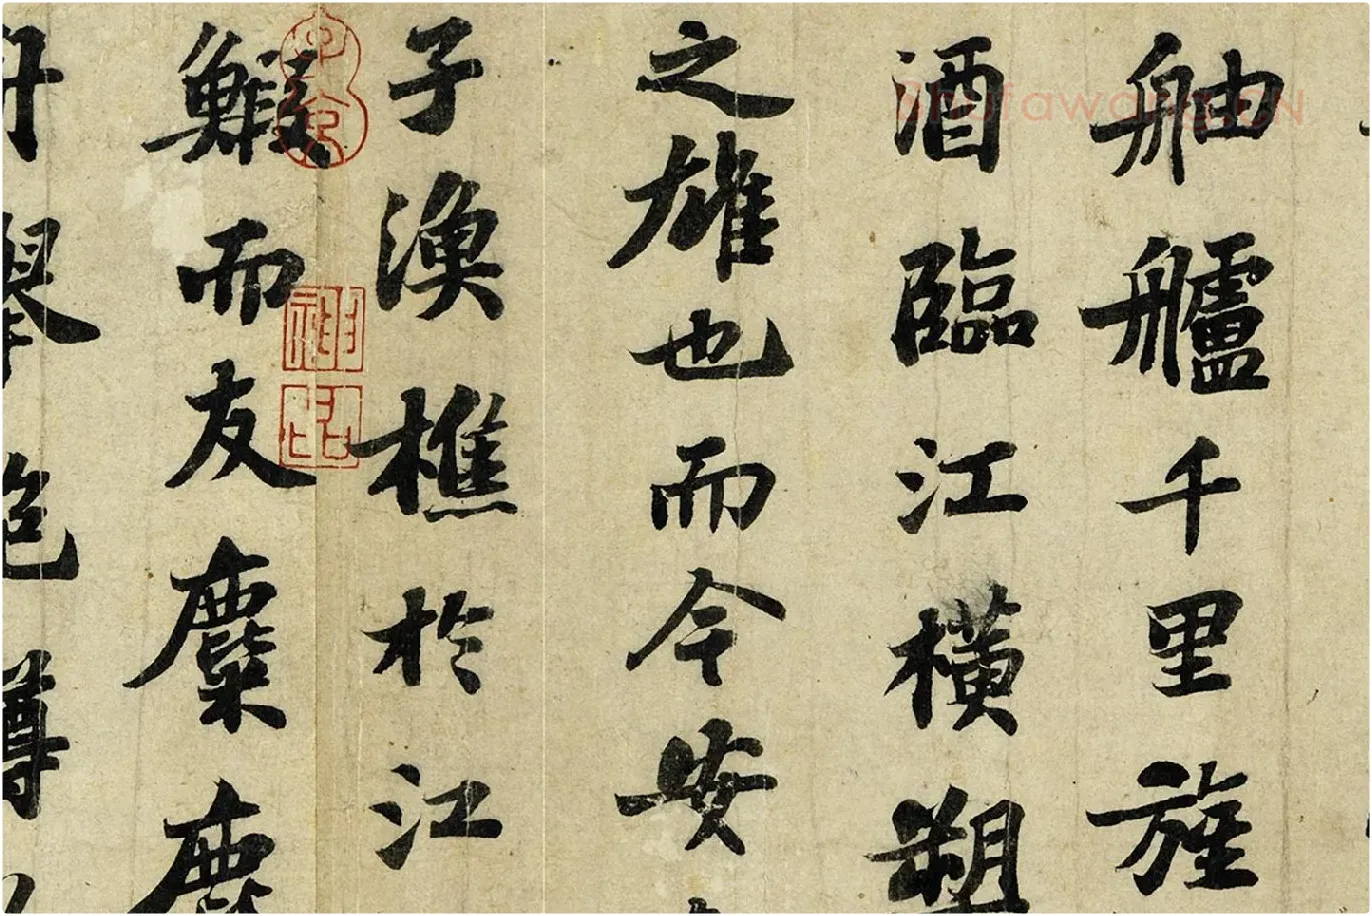 舳艫千里旌
酒臨江橫槊
之雄也而今安
子漁樵於江
鰕而友麋鹿
舟舉匏樽
Shufawang.CN